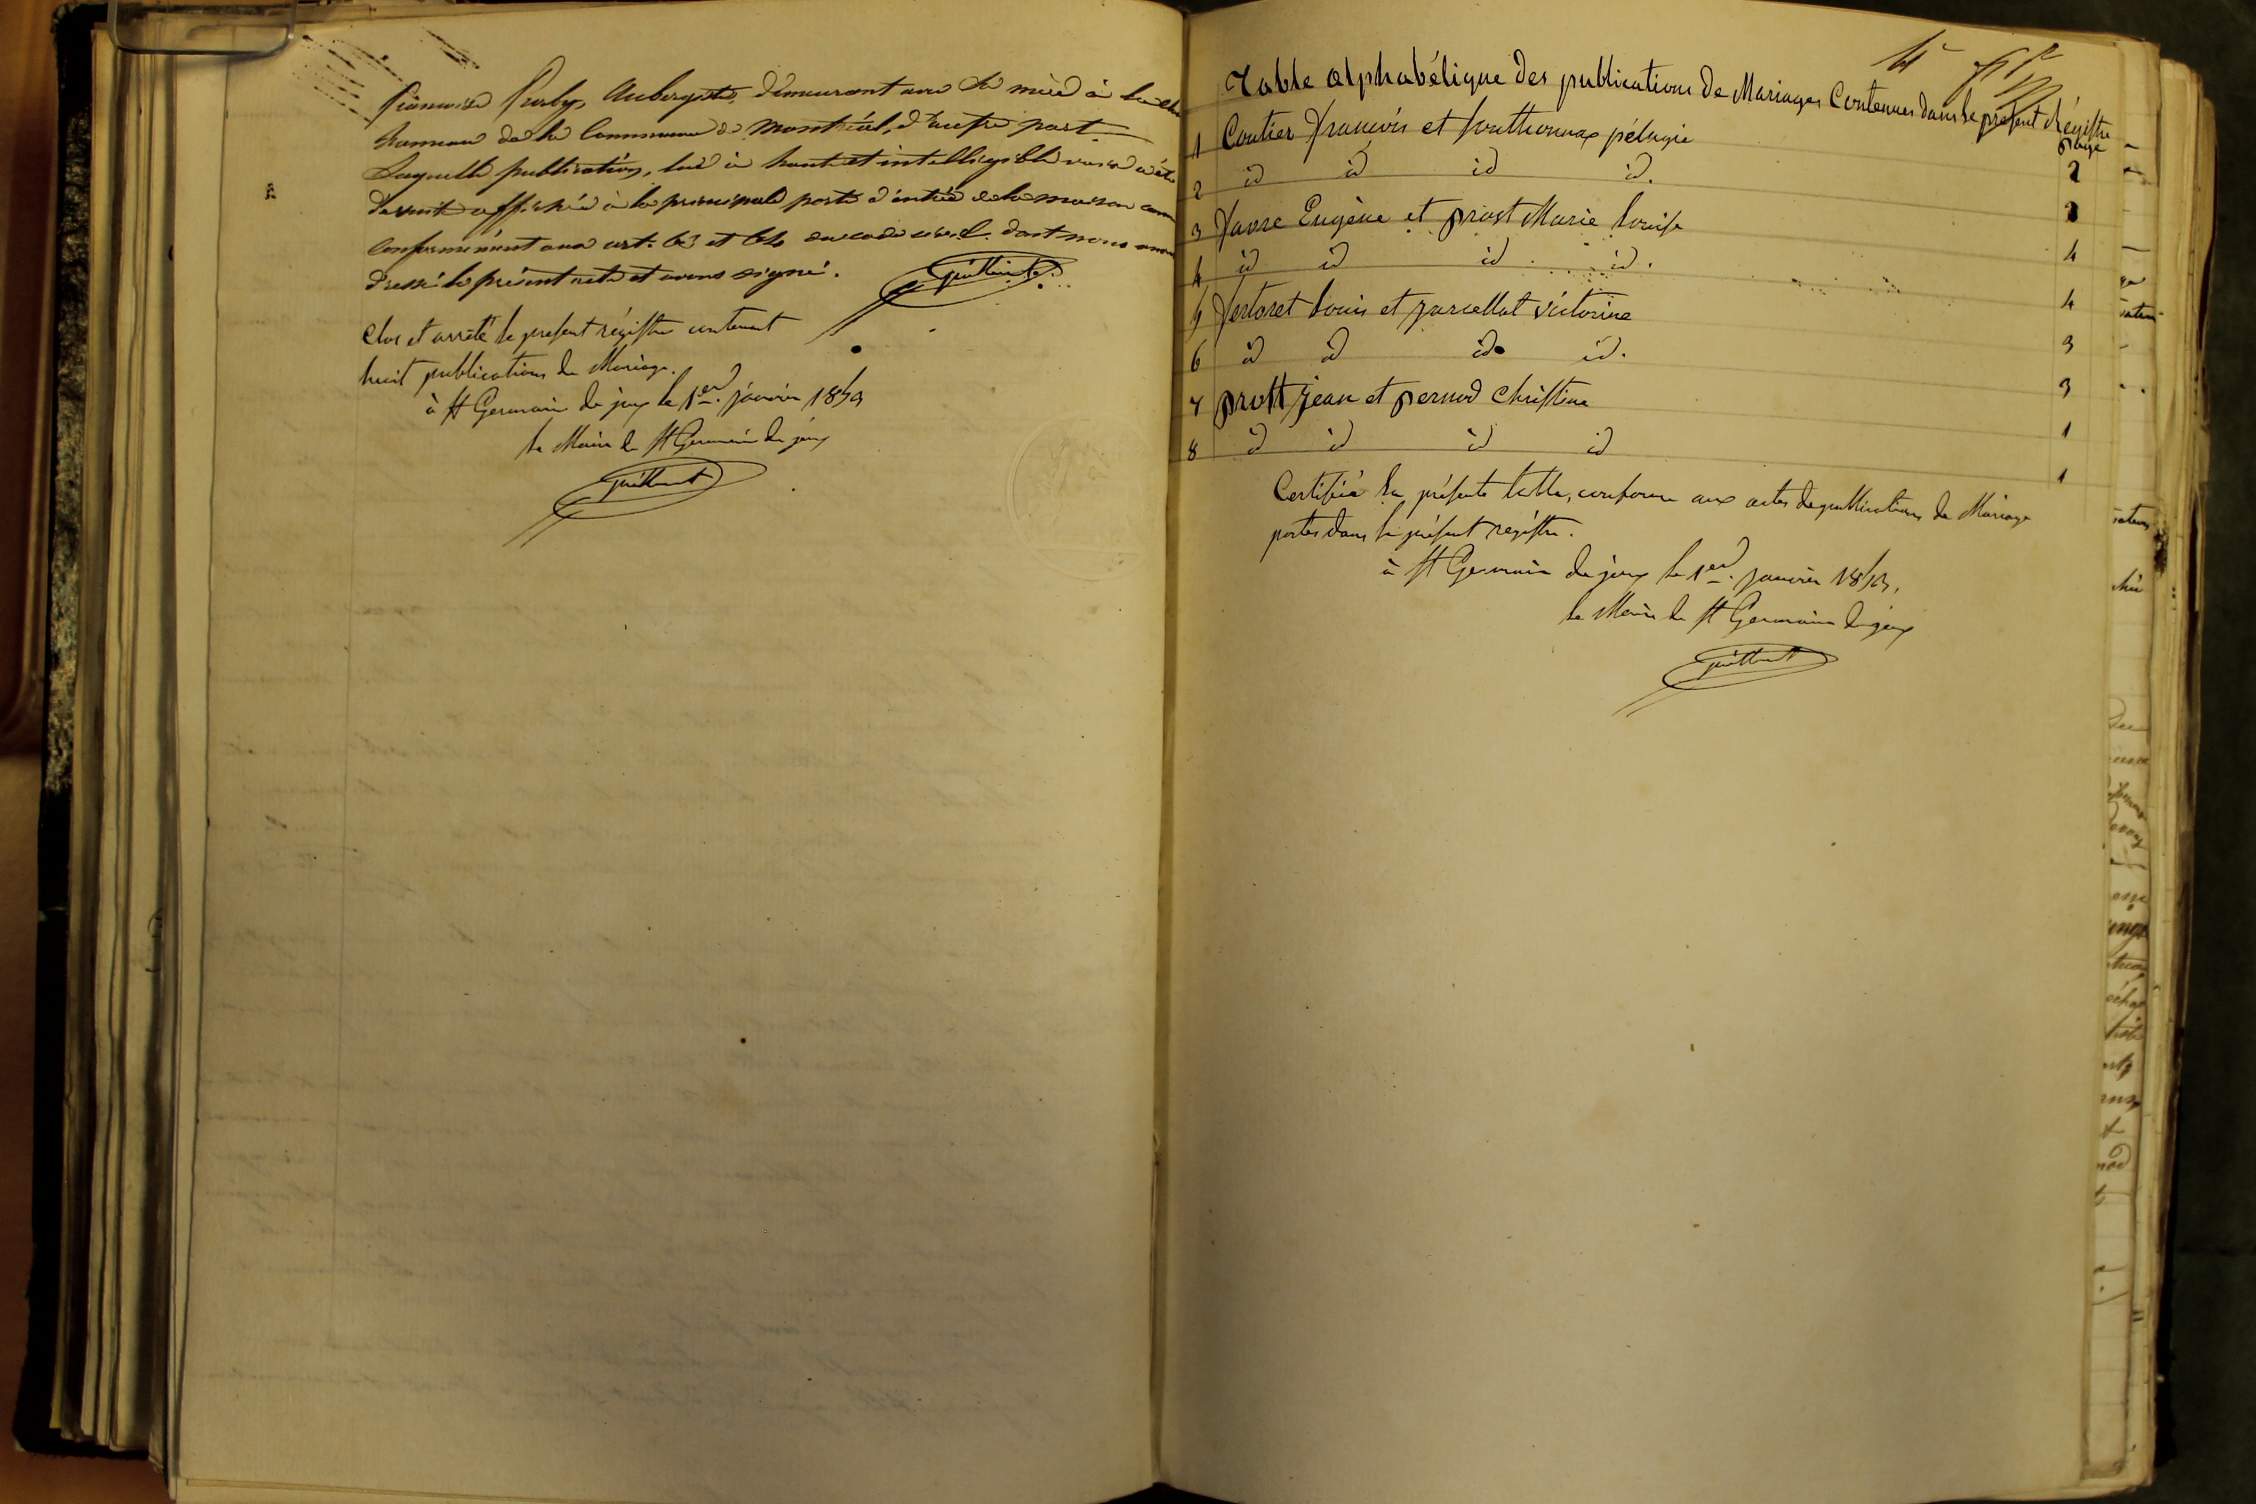 demeurant avec sa mère à
hameau de la Commune de Montréal, d'autre part
Laquelle publication, lue à haute et intelligible voix a été
de suite affichée à la principale porte d'entrée de la maison
conformément aux art. 63 et 64 du code civil. dont nous avons
dressé le présent acte et avons signé.
Clos et arrêté le present régistre contenant
huit publications de Mariage.
à St Germain de joux le 1er janvier 1853
le Maire de St Germain de joux
Table alphabétique des publications de Mariages Contenues dans le présent Régistre
page
1 Coutier François et pélagie 2
2 id id id id. 2
3 Favre Eugène et prost Marie louise 4
4 id id id id. 4
5 louis et victorine 3
6 id id id id. 3
7 prost jean et pernod christine 1
8 id id id id 1
Certifiée la présente table, conforme aux actes de publications de Mariage
portés dans le présent régistre.
à St Germain de joux le 1er janvier 1853,
le Maire de St Germain de joux